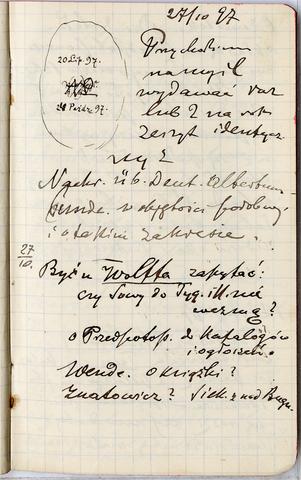 27/10 97
20 Lip. 97.
Paźdz 97.
na myśl
wydawać raz
lub 2 na rok
zeszyt identycz
ny z
Nachr. üb. Deut. Altertum
kunde. w objętości podobnej
i o takim zakresie.
27/10. Być u Wolffa zapytać:
czy Sowy do Tyg. ill. nie
wezmą?
o Przedpotop. do Katalogów
i ogłoszeń.
Wende. o książki?
Znatowicz? Siek. z nad Bugu.